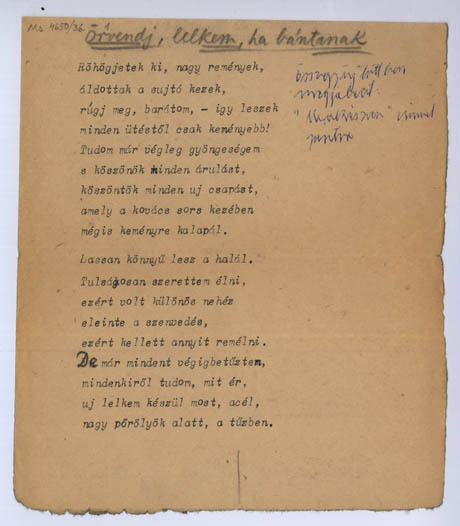 Ms 4650/36.
Örvendj, lelkem, ha bántanak
Röhögjetek ki, nagy remények,
áldottak a sujtó kezek,
rúgj meg, barátom, – igy leszek
minden ütéstől csak keményebb!
Tudom már végleg gyöngeségem
s köszönök minden árulást,
köszöntök minden uj csapást,
amely a kovács sors kezében
mégis keményre kalapál.
Lassan könnyű lesz a halál.
Tulságosan szerettem élni,
ezért volt különös nehéz
eleinte a szenvedés,
ezért kellett annyit remélni.
De már mindent végigbetűztem,
mindenkiről tudom, mit ér,
uj lelkem készül most, acél,
nagy pőrölyök alatt, a tűzben.